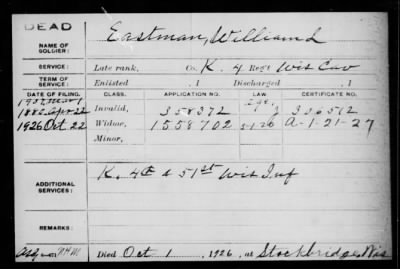 DEAD
NAME OF SOLDIER: Eastman, William d
SERVICE: Late rank, Co. K. 4 Reg't Wis Cav
TERM OF SERVICE: Enlisted , 1 Discharged , 1
DATE OF FILING. CLASS. APPLICATION NO. LAW. CERTIFICATE NO.
1907 Mar 1 age,
1880 Apr 22 Invalid, 358372 306512
1926 Oct 22 Widow, 1558702 5-1-26 A-1-21-27
Minor,
ADDITIONAL SERVICES: K. 4th & 51st Wis Inf
REMARKS:
Died Oct 1, 1926, at Stockbridge, Wis